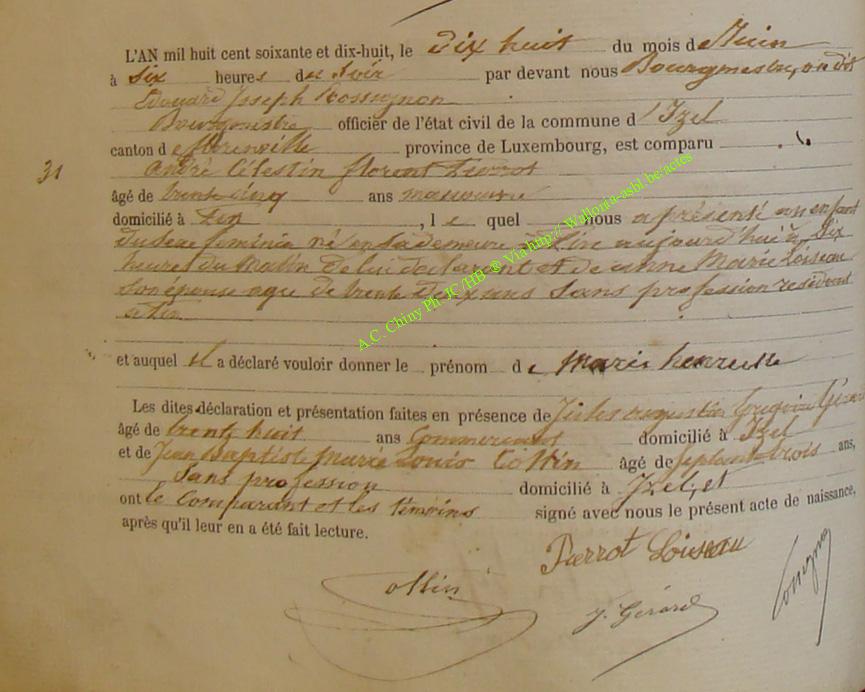 L'AN mil huit cent soixante et dix-huit, le dix huit du mois de Juin
à Six heures du Soir par devant nous Bourgmestre, on dit
Edouard Joseph Rossignon
Bourgmestre officier de l'état civil de la commune d'Izel
canton de florenville province de Luxembourg, est comparu
31
André Célestin florent Pierrot
âgé de trente cinq ans manoeuvre
domicilié à Pin, le quel nous a présenté un enfant
du Sexe féminin né en Sa demeure à Pin aujourd'hui à Six
heures du Matin de lui déclarant et de anne Marie Loiseau
Son épouse age de trente ans Sans profession residant
à Pin
et auquel il a déclaré vouloir donner le prénom de Marie
Les dites déclaration et présentation faites en présence de Jules augustin Grégoire Gérard
âgé de trente huit ans Commercant domicilié à Izel
et de Jean Baptiste Marie Louis Collin âgé de septante trois ans,
Sans profession domicilié à Izel, et
ont le Comparant et les témoins signé avec nous le présent acte de naissance,
après qu'il leur en a été fait lecture.
Pierrot Loiseau
Collin
J. Gérard
A.C. Chiny Ph. JC/HB @ Via http://Wallonia-asbl.be/actes